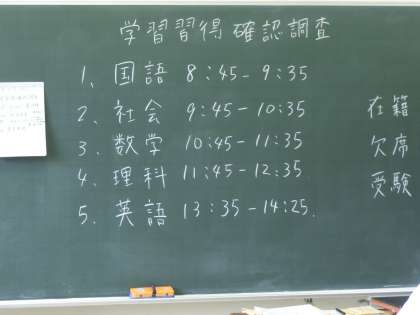 学習習得確認調査
1、国語 8:45-9:35
2、社会 9:45-10:35
3、数学 10:45-11:35
4、理科 11:45-12:35
5、英語 13:35-14:25.
在籍
欠席
受験